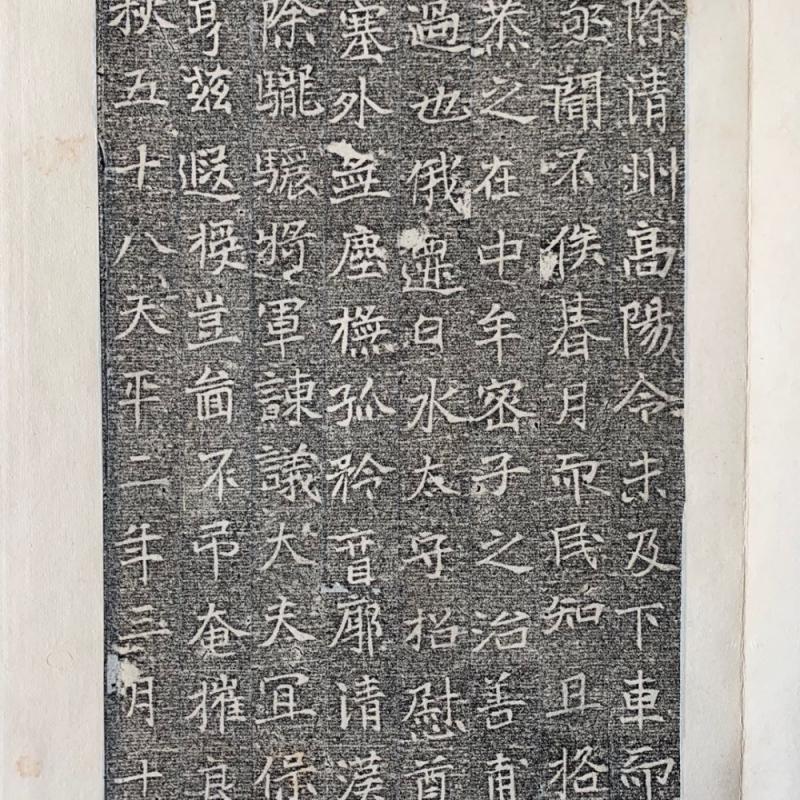 除清州高陽令未及下車而
亟聞不俟朞月而民知且格
恭之在中牟密子之治善甫
過也俄遷白水太守招慰酋
塞外無塵撫孤矜廓清漢
除驤將軍諫議大夫宜保
享茲遐豈啚不弔奄摧良
秋五十八天平二年三月十